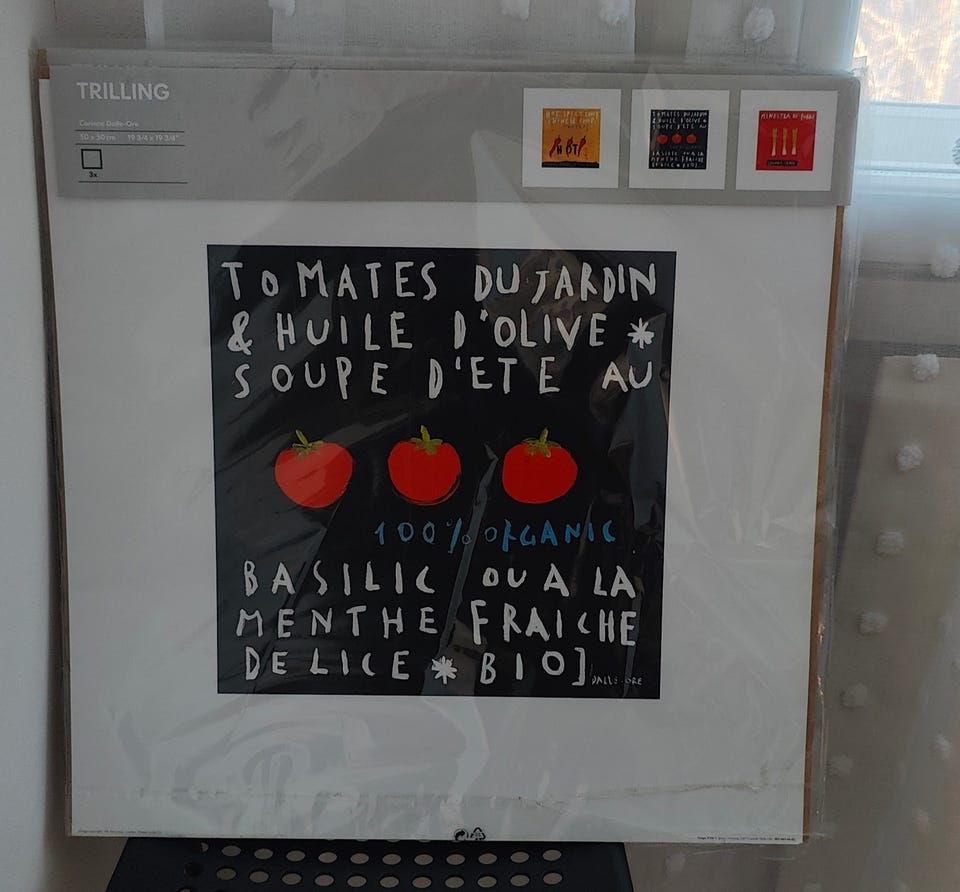 TRILLING
Corinne Dalle-Ore
50 x 50 cm 19 3/4 x 19 3/4"
3x
HOT
TOMATES DU JARDIN
& HUILE D'OLIVE *
SOUPE D'ETE AU
BASILIC OU A LA
MENTHE FRAICHE
MINESTRA DI
TOMATES DU JARDIN
& HUILE D'OLIVE *
SOUPE D'ETE AU
100% ORGANIC
BASILIC OU A LA
MENTHE FRAICHE
DELICE * BIO]
DALLE-ORE